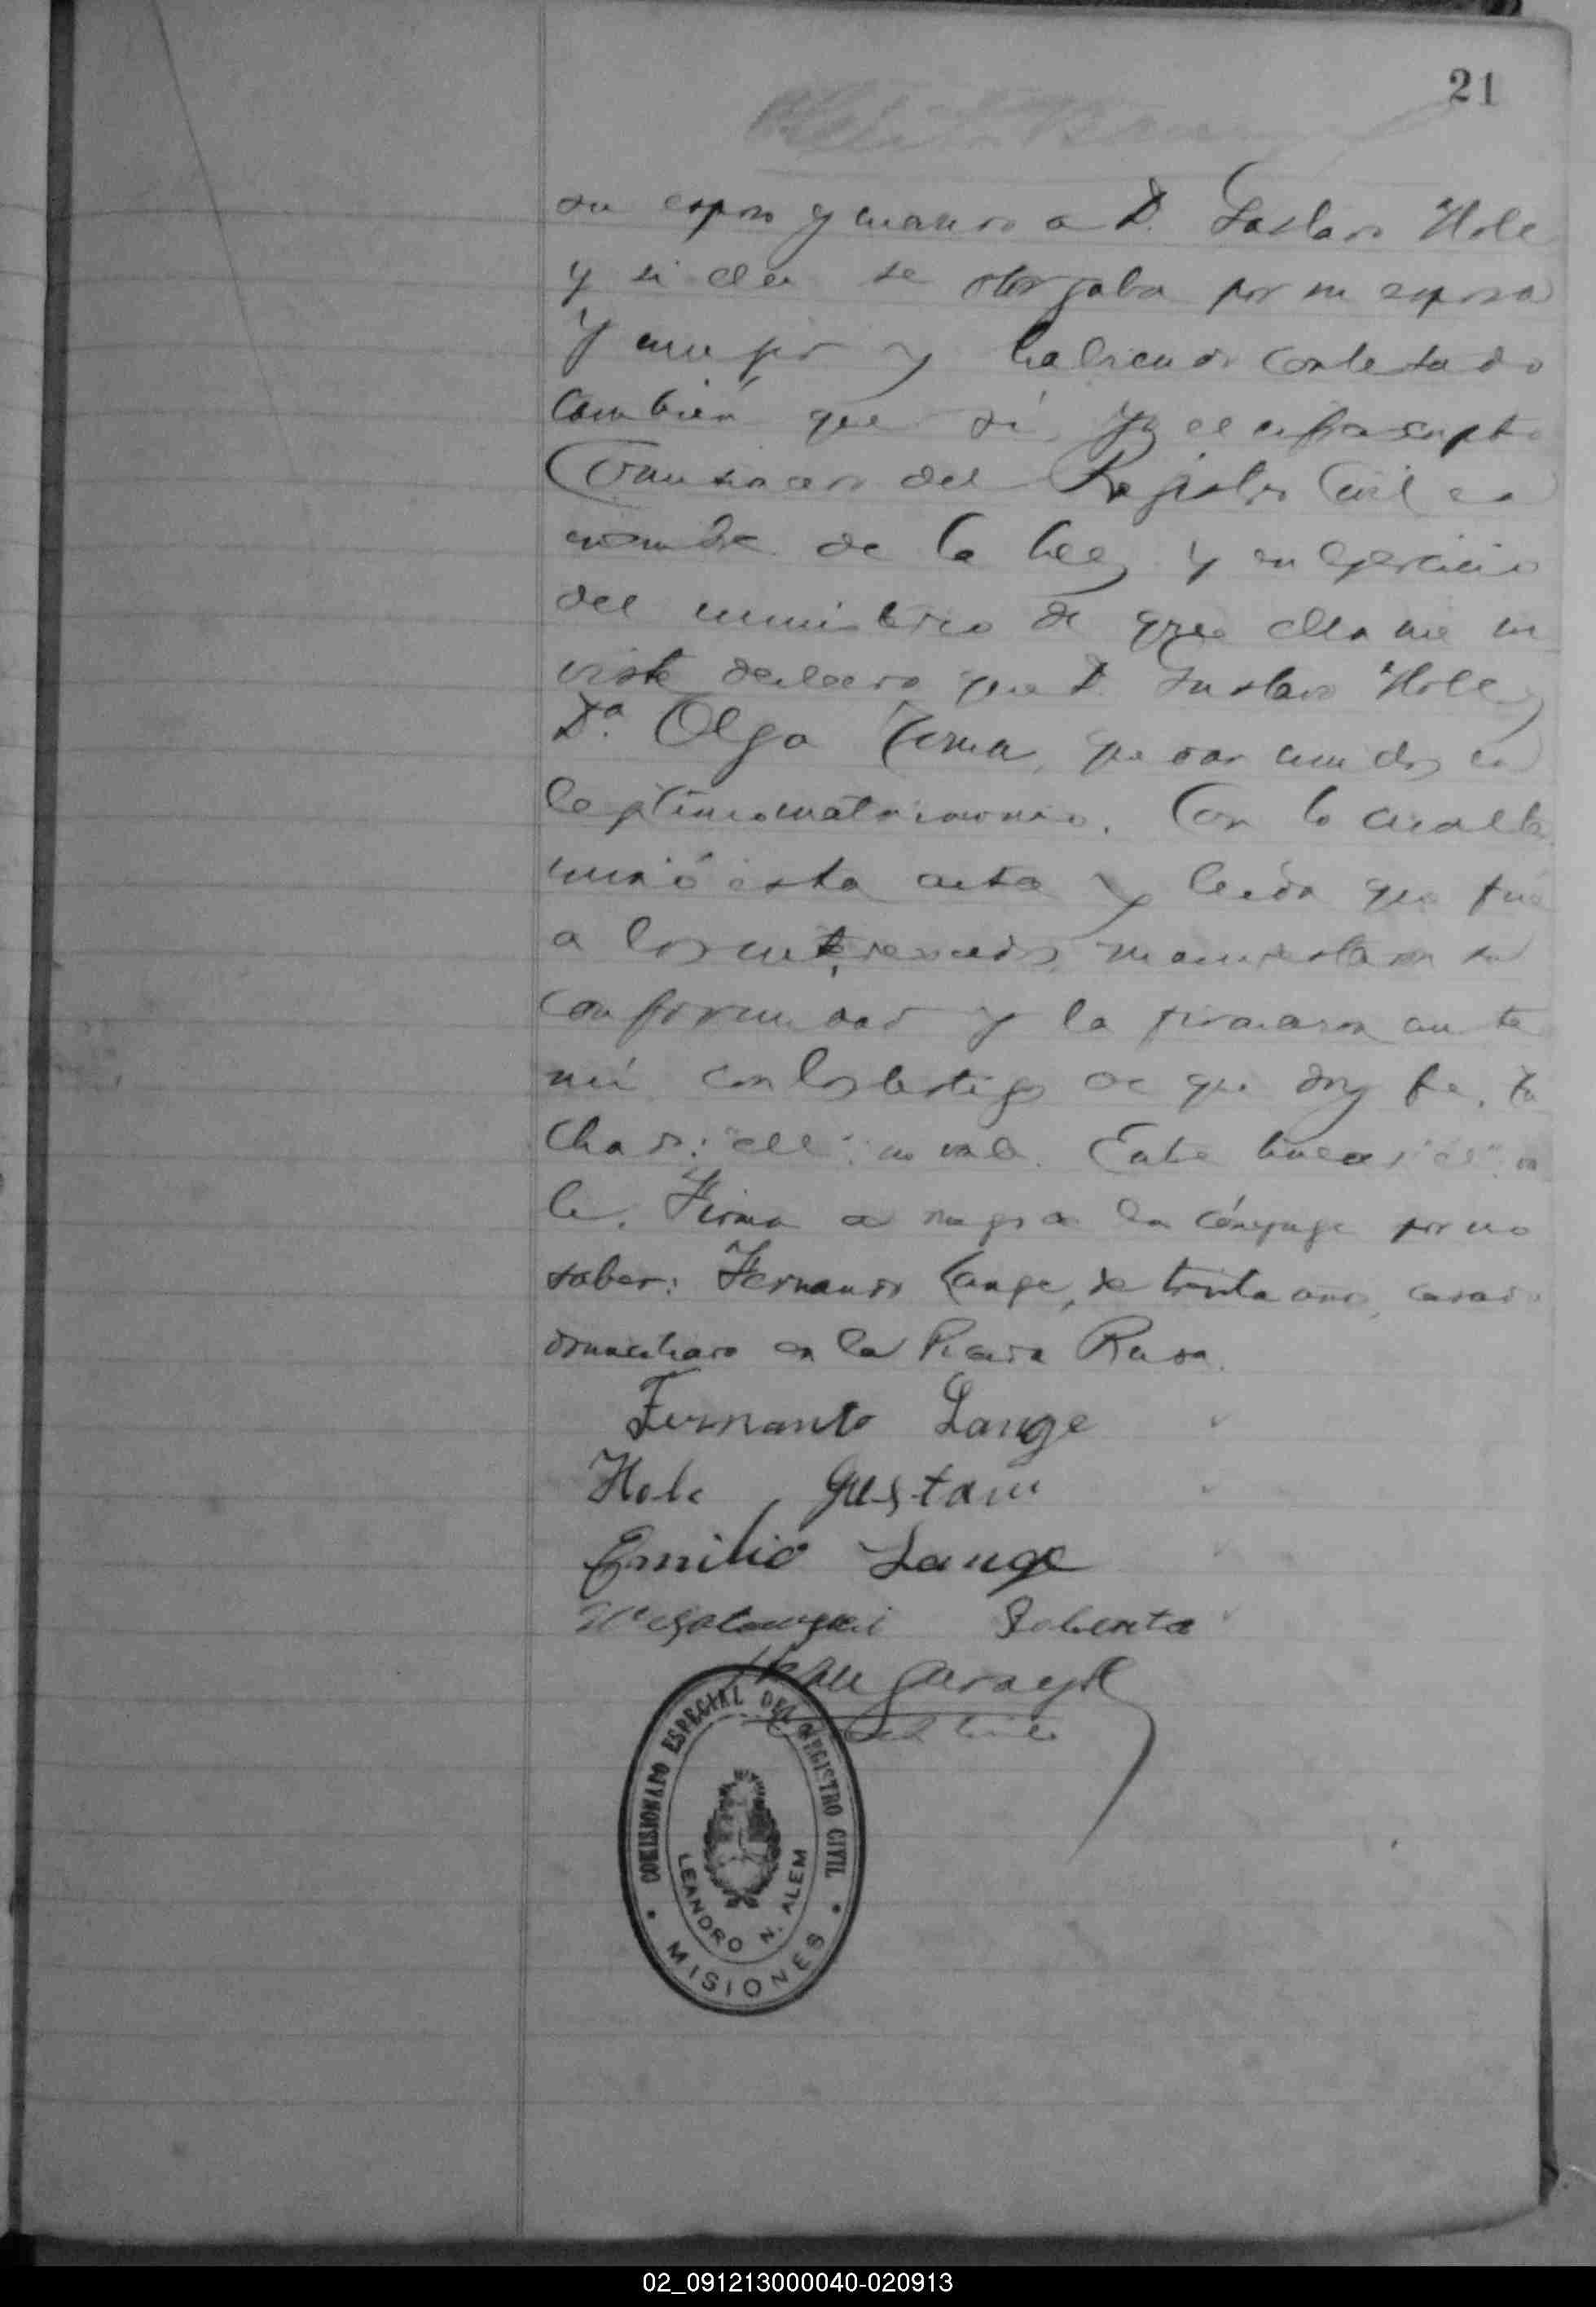 21
su esposo y marido a D. Gustavo Hole
y si ella se otorgaba por su esposa
y mujer y habiendo contestado
también que sí, yo el infrascripto
Comisionado del Registro Civil en
nombre de la Ley y en ejercicio
del ministerio de que ella me in
viste declaro que D. Gustavo Hole y
Dª. Olga quedan unidos en
legítimo matrimonio. Con lo cual ter
minó esta acta y leída que fué
a los interesados manifestaron su
conformidad y la firmaron ante
mí con los testigos de que doy fe. Ta
chado: "ell": no vale. Entre lineas: "el": va
le. Firma a ruego de la cónyuge por no
saber: Fernando Lange, de treinta años, casado
domiciliado en la Picada Rusa.
Fernanto Lange
Hole, Gustavo
Emilio Lange
Roberto
Garay
COMISIONADO ESPECIAL DEL REGISTRO CIVIL
LEANDRO N. ALEM
* MISIONES *
02_091213000040-020913